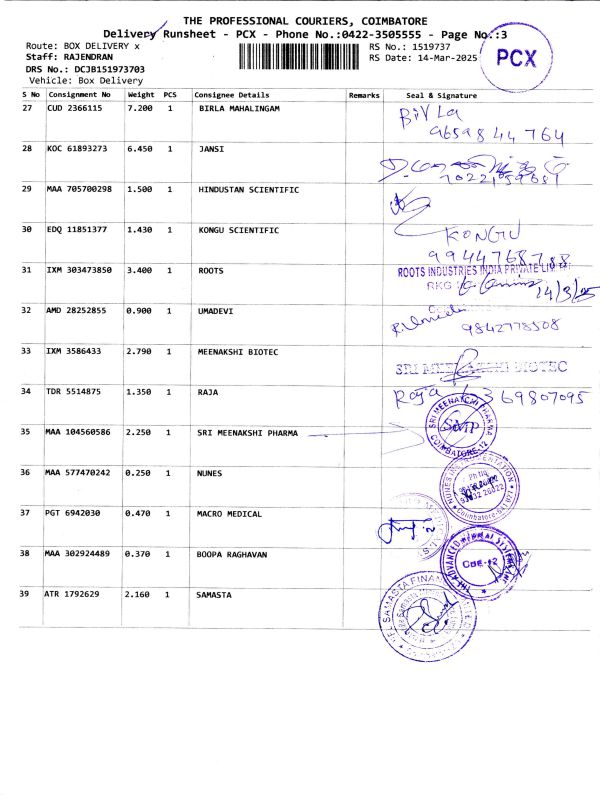 THE PROFESSIONAL COURIERS, COIMBATORE
Delivery Runsheet - PCX - Phone No.:0422-3505555 - Page No.:3
Route: BOX DELIVERY x
RS No.: 1519737
Staff: RAJENDRAN
RS Date: 14-Mar-2025
PCX
DRS No.: DCJB151973703
Vehicle: Box Delivery
S No Consignment No Weight PCS Consignee Details Remarks Seal & Signature
27 CUD 2366115 7.200 1 BIRLA MAHALINGAM
BiVLa
9659844764
28 KOC 61893273 6.450 1 JANSI
29 MAA 705700298 1.500 1 HINDUSTAN SCIENTIFIC
30 EDQ 11851377 1.430 1 KONGU SCIENTIFIC
KONGU
9944768788
31 IXM 303473850 3.400 1 ROOTS
ROOTS INDUSTRIES INDIA PRIVATE LIMITED
RKG
14/3/25
32 AMD 28252855 0.900 1 UMADEVI
9842778508
33 IXM 3586433 2.790 1 MEENAKSHI BIOTEC
SRI MEENAKSHI BIOTEC
34 TDR 5514875 1.350 1 RAJA
Raja
69807095
35 MAA 104560586 2.250 1 SRI MEENAKSHI PHARMA
SRI MEENAKCHI PHARMA
SMP
COIMBATORE-12
36 MAA 577470242 0.250 1 NUNES
NUNES INSTRUMENTATION
37 PGT 6942030 0.470 1 MACRO MEDICAL
38 MAA 302924489 0.370 1 BOOPA RAGHAVAN
THE ADVANCED
CBE-12
39 ATR 1792629 2.160 1 SAMASTA
SAMASTA FINAN